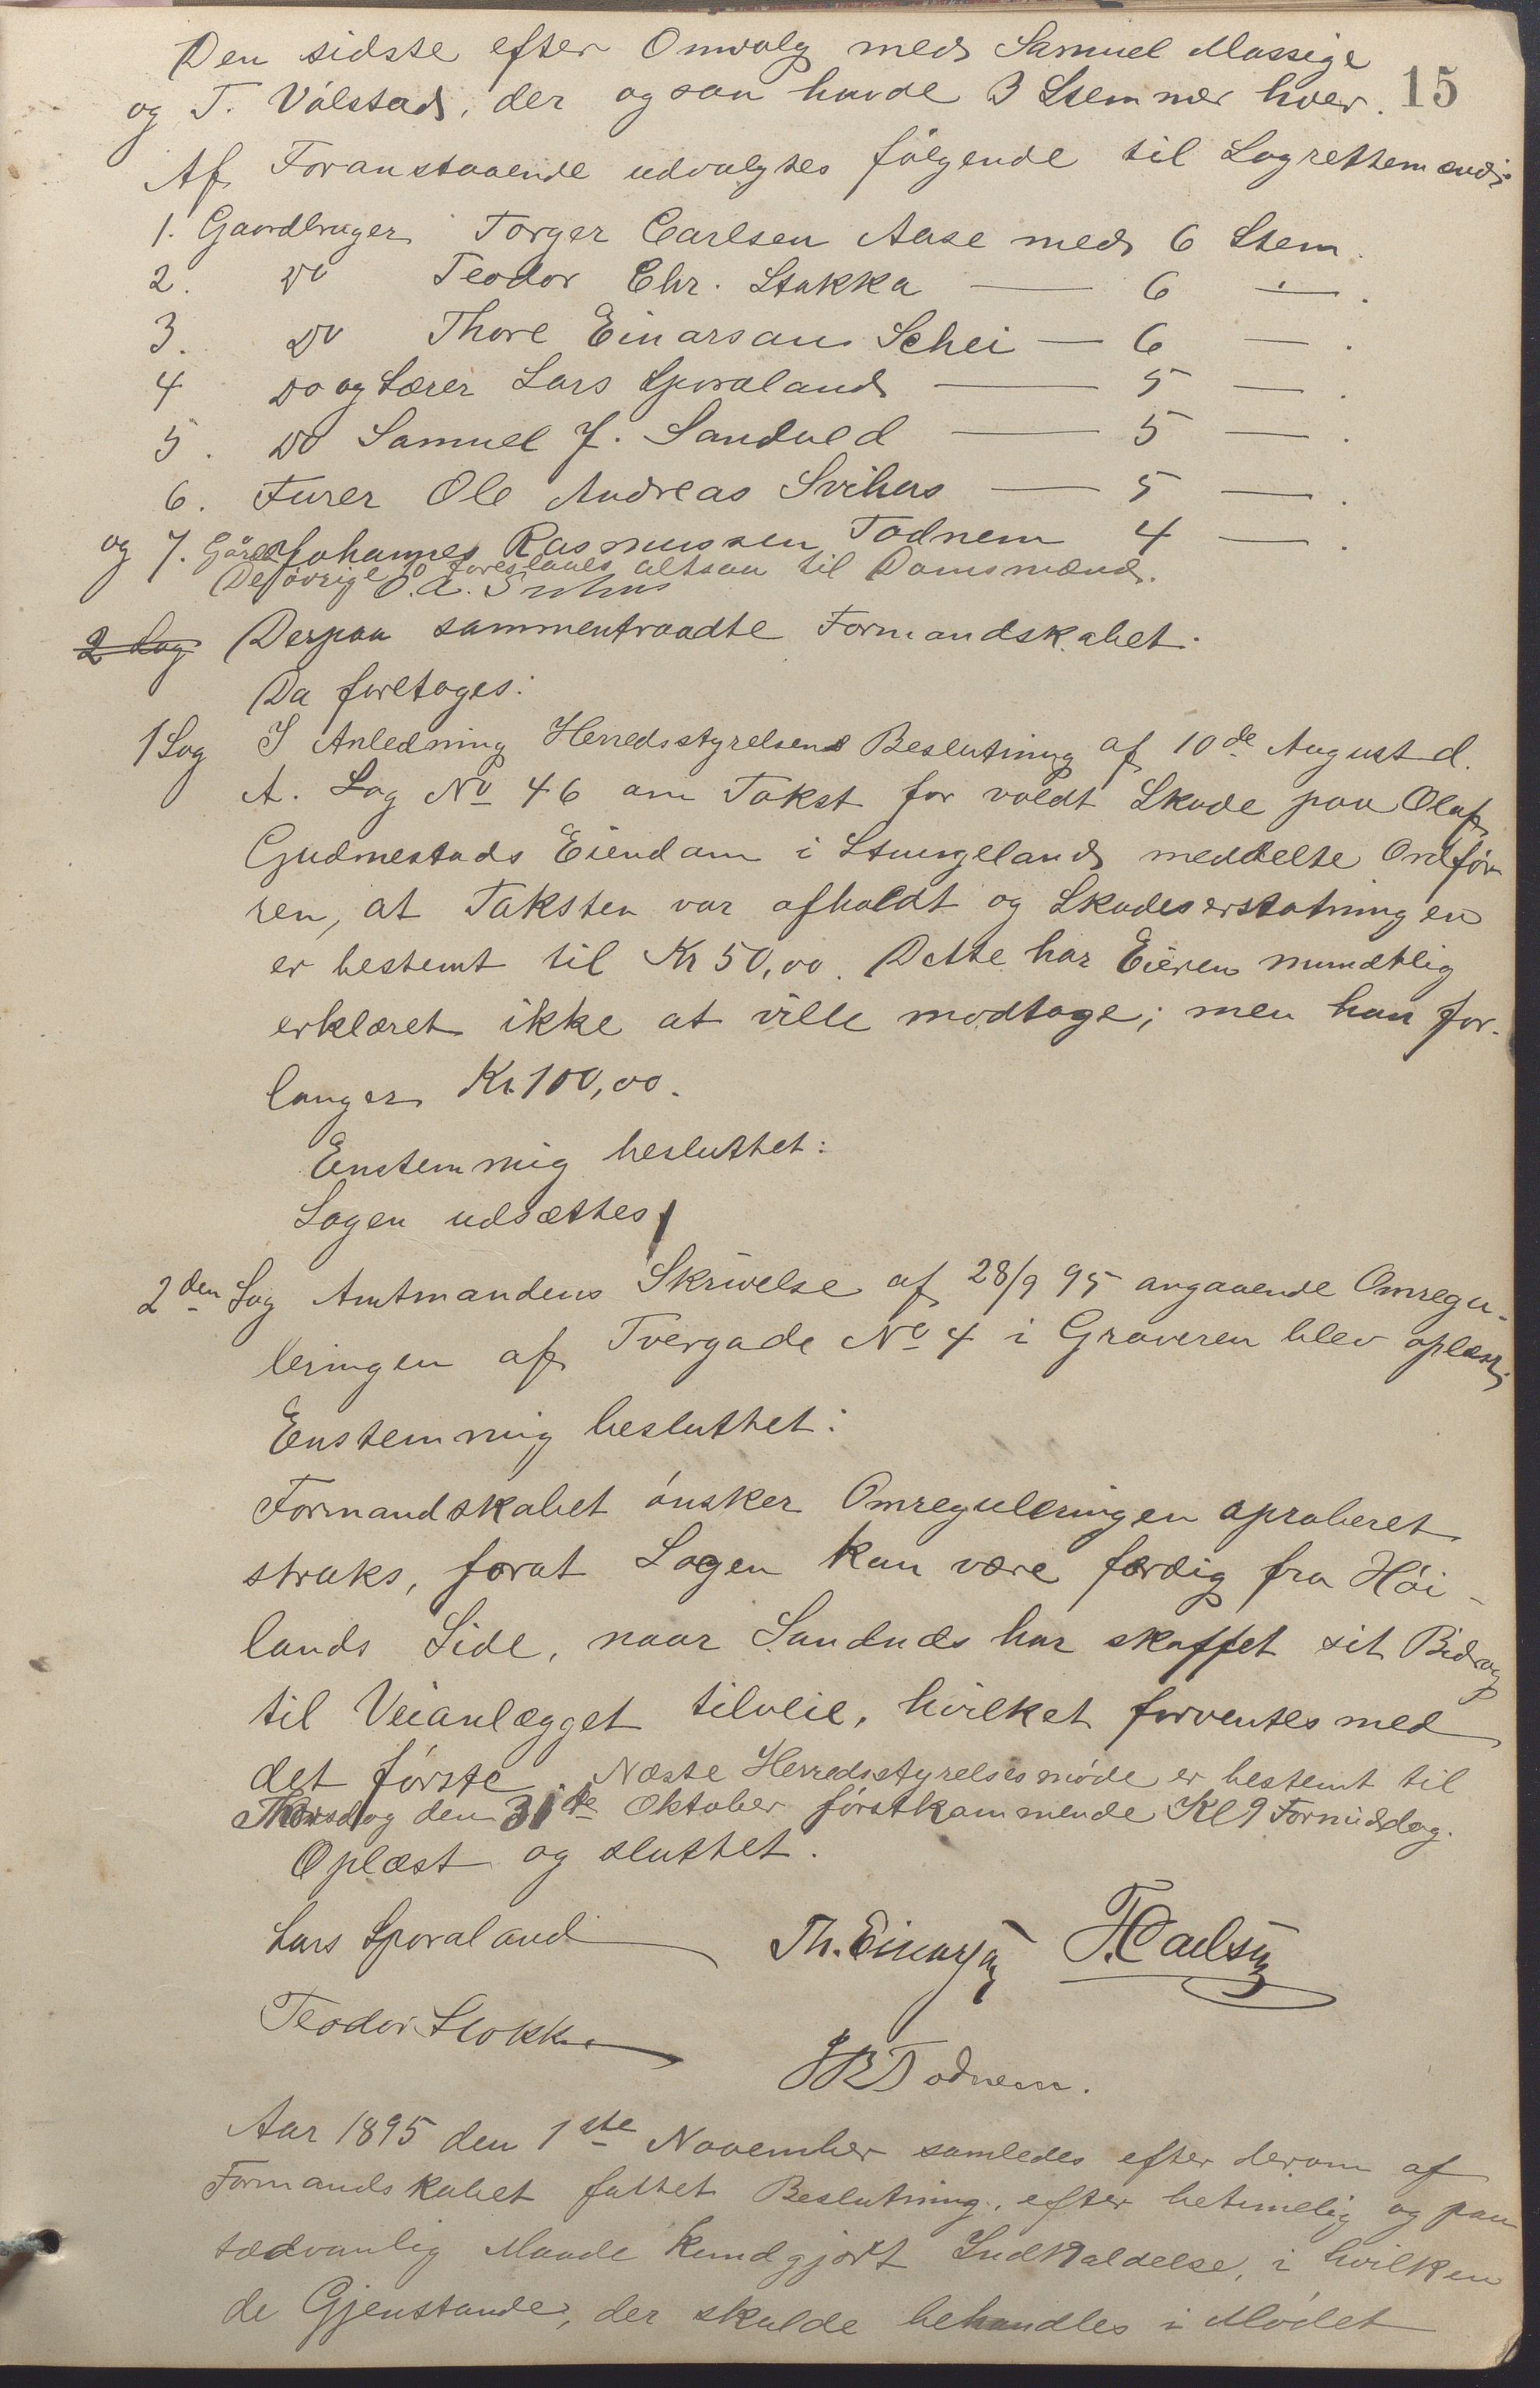 Den sidste efter Omvalg med Samuel Massige
og T. Válstad, der ogsaa havde 3 Stemmer hver. 15
Af Foranstaaende udvalgtes følgende til Lagrettemænd:
1. Gaardbruger Torger Carlsen Aase med 6 Stem.
2. Do Teodor Chr. Stokka — 6 — .
3. Do Thore Einarsen Schei — 6 — .
4 Do og Lærer Lars Sporaland — 5 — .
5. Do Samuel J. Sandved — 5 — .
6. Furer Ole Andreas Svihus — 5 — .
og 7. Gårdb Johannes Rasmussen Todnem 4 — .
De øvrige 10 foreslaaes altsaa til Domsmænd.
O. A. Svihus
2 Sag Derpaa sammentraadte Formandskabet.
Da foretoges:
1 Sag I Anledning Herredsstyrelsens Beslutning af 10de August d.
A. Sag No 46 om Takst for voldt Skade paa Olaf
Gudmestads Eiendom i Stangeland meddelte Ordfør-
ren, at Taksten var afholdt og Skadeserstatningen
er bestemt til Kr 50,00. Dette har Eieren mundtlig
erklæret ikke at ville modtage; men han for-
langer Kr. 100,00.
Enstemmig besluttet:
Sagen udsættes
2den Sag Amtmandens Skrivelse af 28/9 95 angaaende Omregu-
leringen af Tvergade No 4 i Graveren blev oplæst;
Enstemmig besluttet:
Formandskabet ønsker Omreguleringen aproberet
straks, forat Sagen kan være færdig fra Høi-
lands Side, naar Sandnes har skaffet sit Bidrag
til Veianlægget tilveie, hvilket forventes med
det første. Næste Herredsstyrelsesmøde er bestemt til
Thorsdag den 31te Oktober førstkommende Kl 9 Formiddag.
Oplæst og sluttet.
Lars Sporaland Th. Einarsen T. Carlsen
Teodor Stokka
J R Todnem.
Aar 1895 den 1ste November samledes efter derom af
Formandskabet fattet Beslutning, efter betimelig og paa
sædvanlig Maade kundgjort Indkaldelse, i hvilken
de Gjenstande, der skulde behandles i Mødet